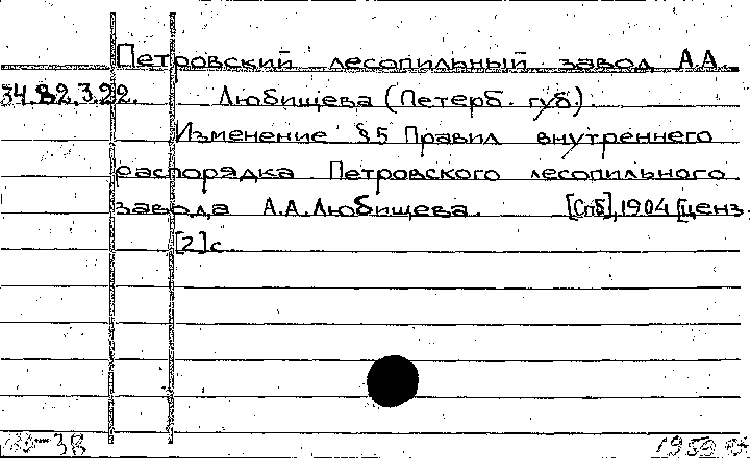 Петровский лесопильный завод А.А.
34.82.3.22. Любищева (Петерб. губ.)
Изменение §5 Правил внутреннего
распорядка Петровского лесопильного
завода А.А.Любищева. [Спб], 1904 [ценз.
[2] с